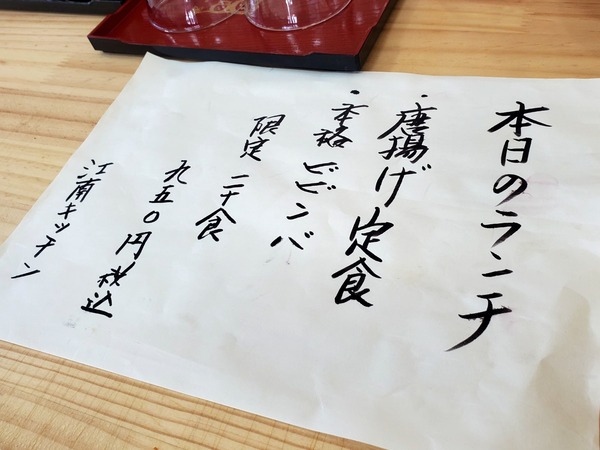 本日のランチ
・唐揚げ定食
・本格ビビンバ
限定二十食
九五〇円税込
江南キッチン